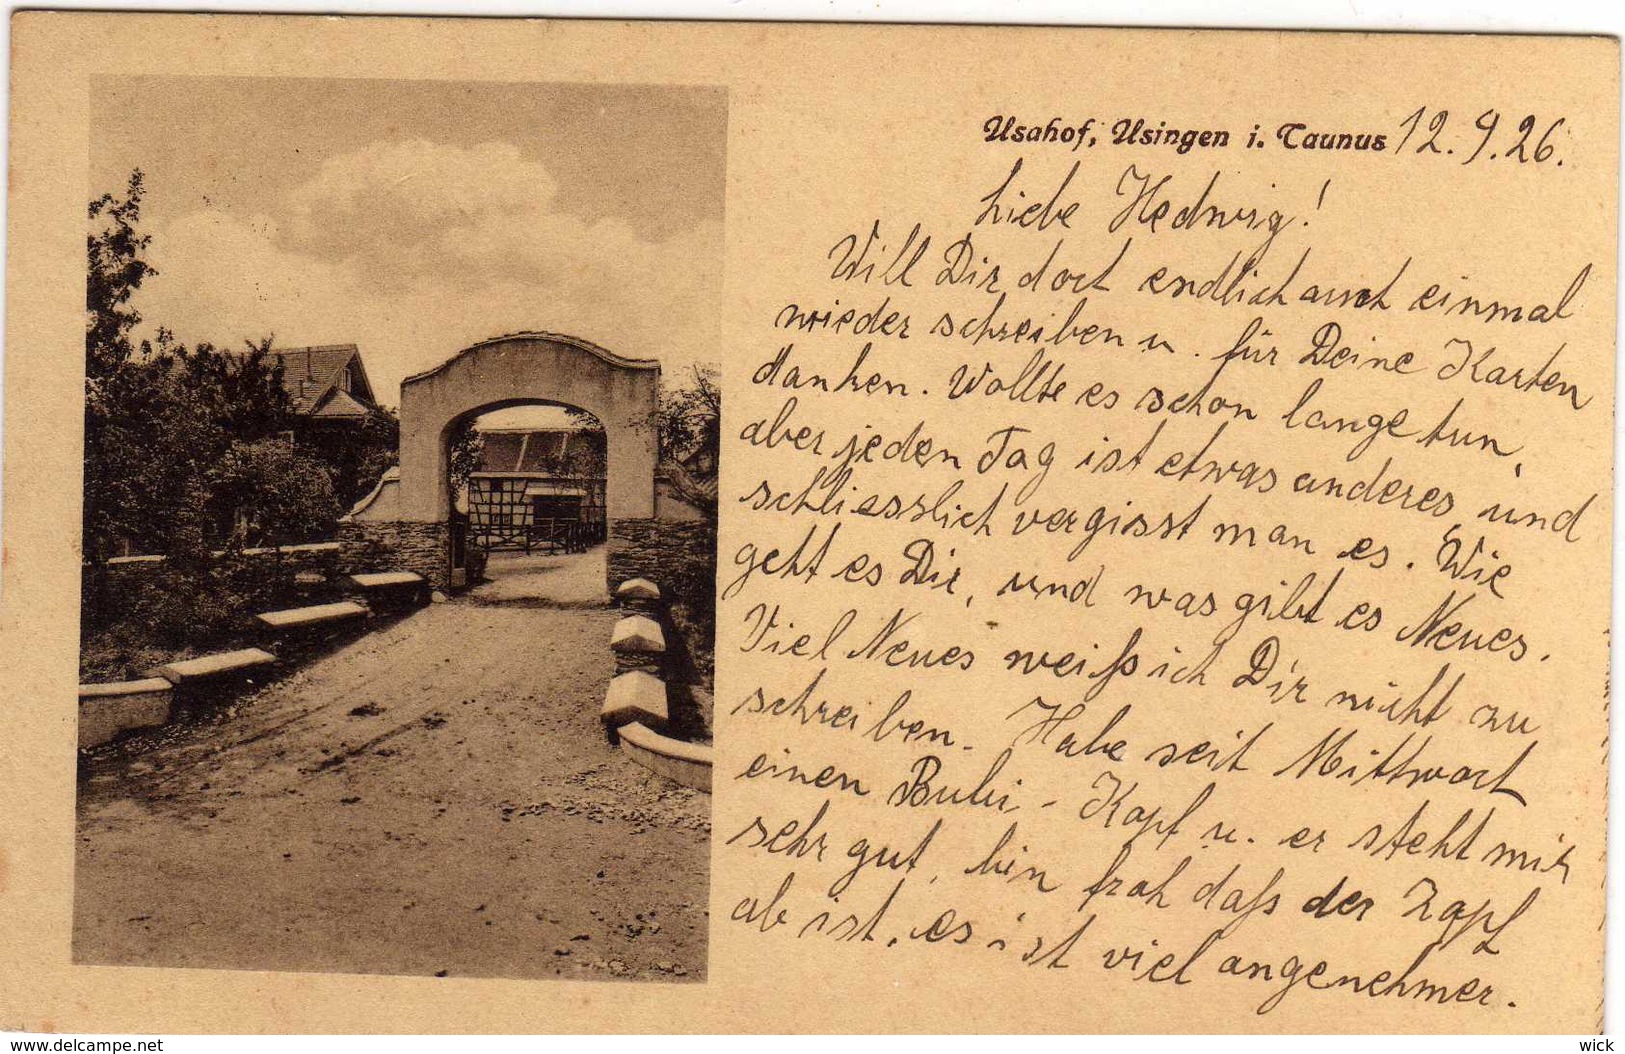 Usahof, Usingen i. Taunus 12.9.26.
Liebe Hedwig!
Will Dir dort endlich auch einmal
wieder schreiben u. für Deine Karten
danken. Wollte es schon lange tun,
aber jeden Tag ist etwas anderes, und
schliesslich vergisst man es. Wie
geht es Dir, und was gibt es Neues.
Viel Neues weiß ich Dir nicht zu
schreiben. Habe seit Mittwoch
einen Bubi-Kopf u. er steht mir
sehr gut, bin froh daß der Zopf
ab ist, es ist viel angenehmer.
www.delcampe.net
wick